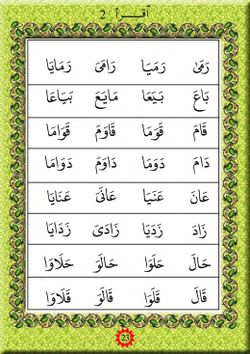 اقرأ 2
رَمَىٰ رَمَيَا رَامَىَ رَمَايَا
بَاعَ بَيَعَا مَايَعَ بَيَاعَا
قَامَ قَوَمَا قَاوَمَ قَوَامَا
دَامَ دَوَمَا دَاوَمَ دَوَامَا
عَانَ عَنَيَا عَانَىَ عَنَايَا
زَادَ زَدَيَا زَادَىَ زَدَايَا
حَالَ حَلَوَا حَالَوَ حَلَاوَا
قَالَ قَلَوَا قَالَوَ قَلَاوَا
23